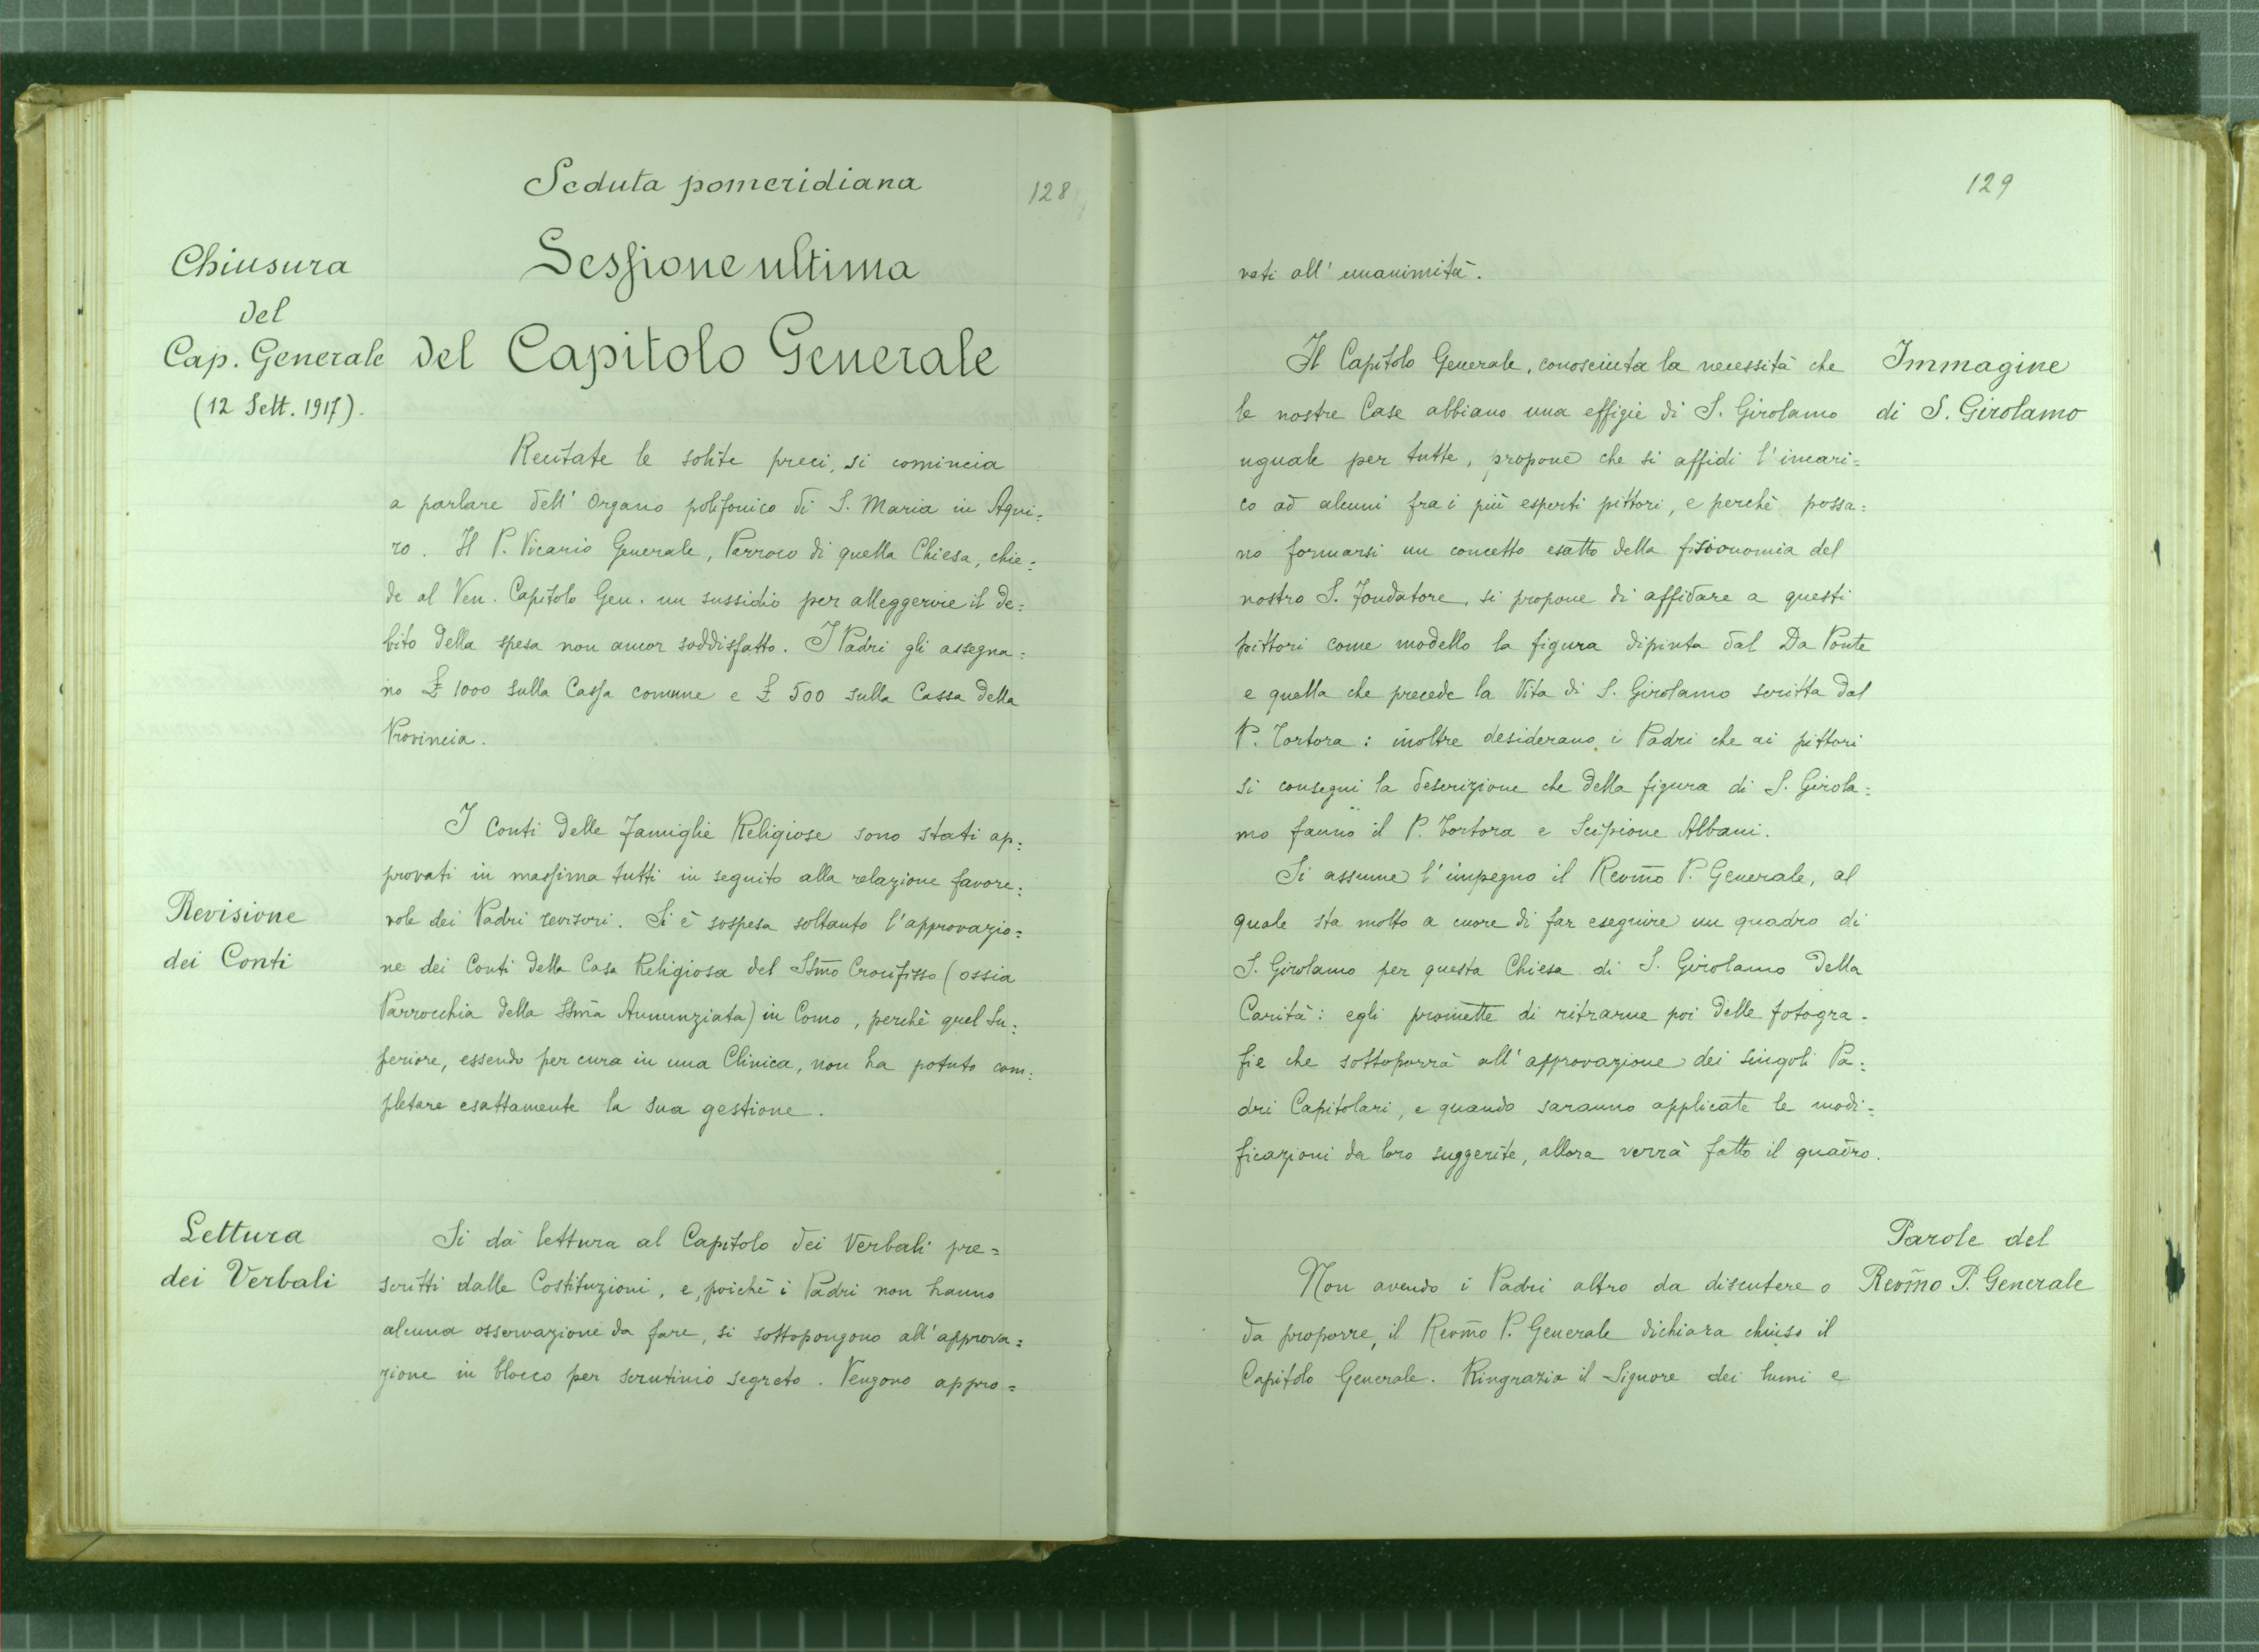 Seduta pomeridiana
128
Chiusura
del
Cap. Generale
(12 Sett. 1917).
Sessione ultima
del Capitolo Generale
Recitate le solite preci, si comincia
a parlare dell' Organo polifonico di S. Maria in Aqui=
ro. Il P. Vicario Generale, Parroco di quella Chiesa, chie=
de al Ven. Capitolo Gen. un sussidio per alleggerire il de=
bito della spesa non ancor soddisfatto. I Padri gli assegna=
no £ 1000 sulla Cassa comune e £ 500 sulla Cassa della
Provincia.
Revisione
dei Conti
I Conti delle Famiglie Religiose sono stati ap=
provati in massima tutti in seguito alla relazione favore=
vole dei Padri revisori. Si è sospesa soltanto l'approvazio=
ne dei Conti della Casa Religiosa del SSm̃o Crocifisso (ossia
Parrocchia della SSm̃a Annunziata) in Como, perchè quel Su=
periore, essendo per cura in una Clinica, non ha potuto com=
pletare esattamente la sua gestione.
Lettura
dei Verbali
Si dà lettura al Capitolo dei Verbali pre=
scritti dalle Costituzioni, e, poichè i Padri non hanno
alcuna osservazione da fare, si sottopongono all'approva=
zione in blocco per scrutinio segreto. Vengono appro=
129
vati all' unanimità.
Immagine
di S. Girolamo
Il Capitolo Generale, conosciuta la necessità che
le nostre Case abbiano una effigie di S. Girolamo
uguale per tutte, propone che si affidi l'incari=
co ad alcuni fra i più esperti pittori, e perchè possa=
no formarsi un concetto esatto della fisionomia del
nostro S. Fondatore, si propone di affidare a questi
pittori come modello la figura dipinta dal Da Ponte
e quella che precede la Vita di S. Girolamo scritta dal
P. Tortora: inoltre desiderano i Padri che ai pittori
si consegni la descrizione che della figura di S. Girola=
mo fanno il P. Tortora e Scipione Albani.
Si assume l'impegno il Revm̃o P. Generale, al
quale sta molto a cuore di far eseguire un quadro di
S. Girolamo per questa Chiesa di S. Girolamo della
Carità: egli promette di ritrarne poi delle fotogra=
fie che sottoporrà all'approvazione dei singoli Pa=
dri Capitolari, e quando saranno applicate le modi=
ficazioni da loro suggerite, allora verrà fatto il quadro.
Parole del
Revm̃o P. Generale
Non avendo i Padri altro da discutere o
da proporre, il Revm̃o P. Generale dichiara chiuso il
Capitolo Generale. Ringrazia il Signore dei lumi e